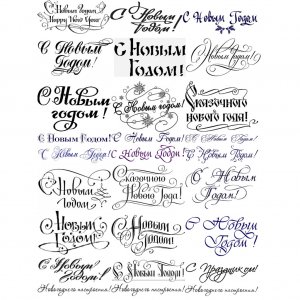 С Новым Годом
Happy New Year
С Новым
Годом!
С Новым Годом!
С Новым
Годом!
С Новым
Годом!
С Новым
Годом!
С Новым
годом!
С Новым годом!
Сказочного
нового года!
С Новым Годом!
С Новым Годом!
С Новым Годом!
С Новым Годом!
С Новым Годом!
С Новым Годом!
С Новым
Годом
Сказочного
Нового
Года!
С Новым
Годом!
С Новым
Годом!
С Новым
Годом!
С Новым
Годом!
С Новым
Годом!
С Новым
Годом!
С Праздником!
Новогоднего настроения!
Новогоднего настроения!
Новогоднего настроения!